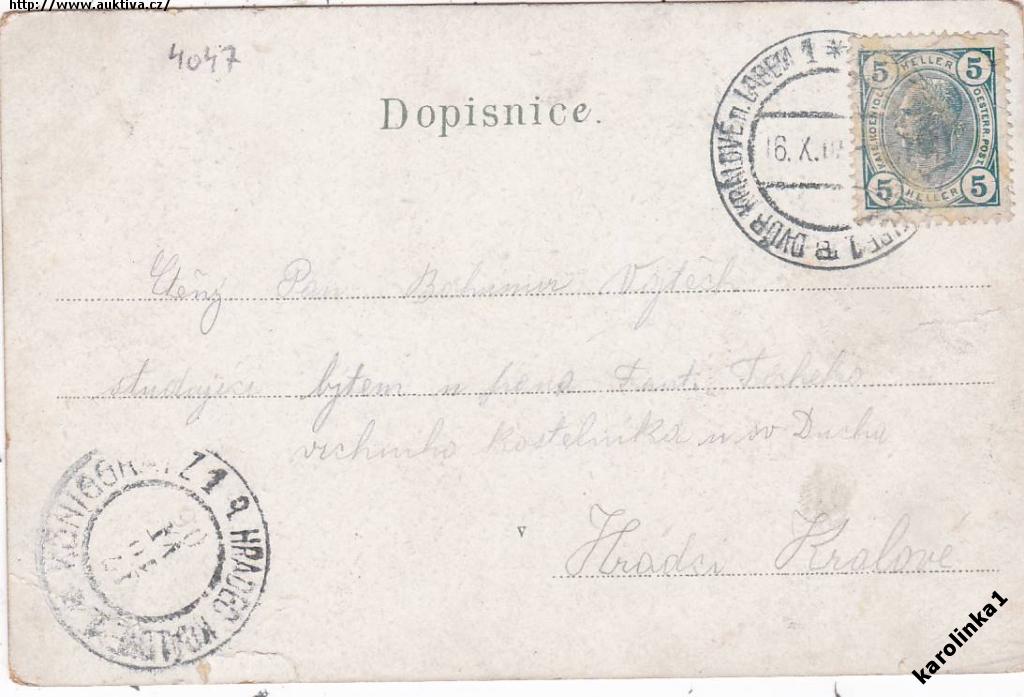 http://www.auktiva.cz/
4047
Dopisnice.
DVŮR KRÁLOVÉ n. LABEM 1 *
16. X.
5 HELLER 5
KAIS. KOENIGL. OESTERR. POST.
5 HELLER 5
Pán Bohumír Vojtěch
studující bytem u pana Frant.
vrchního kostelníka u sv Ducha
v Hradci Králové
KÖNIGGRÄTZ 1 HRADEC KRÁLOVÉ 1
karolinka1